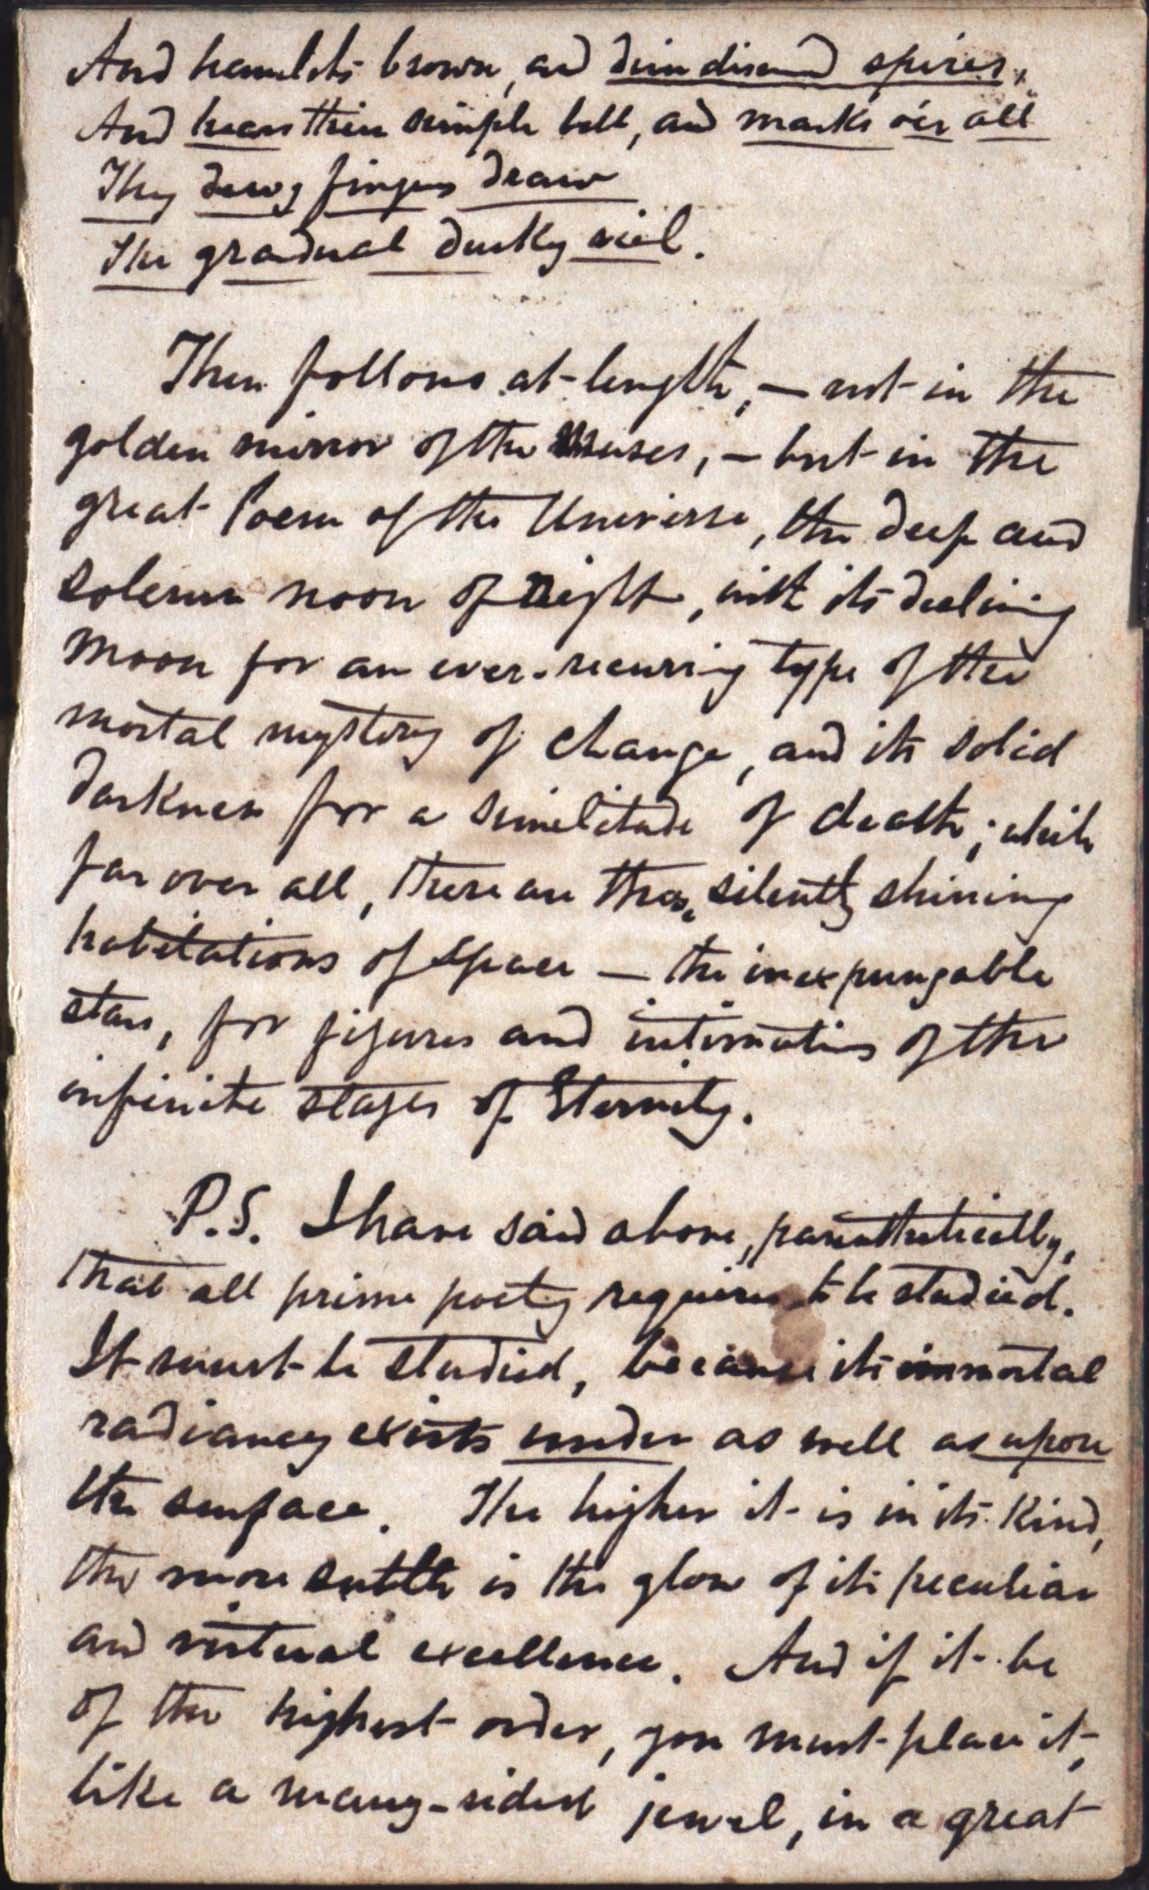 And hamlets brown, and dim discover'd spires,
And hears their simple bell, and marks o'er all
Thy dewy fingers draw
The gradual dusky viel.
Then follows at length, — not in the
golden mirror of the Muses, — but in the
great Poem of the Universe, the deep and
solemn noon of Night, with its declining
moon for an ever-recurring type of the
mortal mystery of change, and its solid
darkness for a similitude of death; while
far over all, there are those silently shining
habitations of space — the inexpungable
stars, for figures and intimations of the
infinite stages of Eternity.
P.S. I have said above, parenthetically,
that all prime poetry requires to be studied.
It must be studied, because its immortal
radiancy exists under as well as upon
the surface. The higher it is in its kind,
the more subtle is the glow of its peculiar
and virtual excellence. And if it be
of the highest order, you must place it,
like a many-sided jewel, in a great